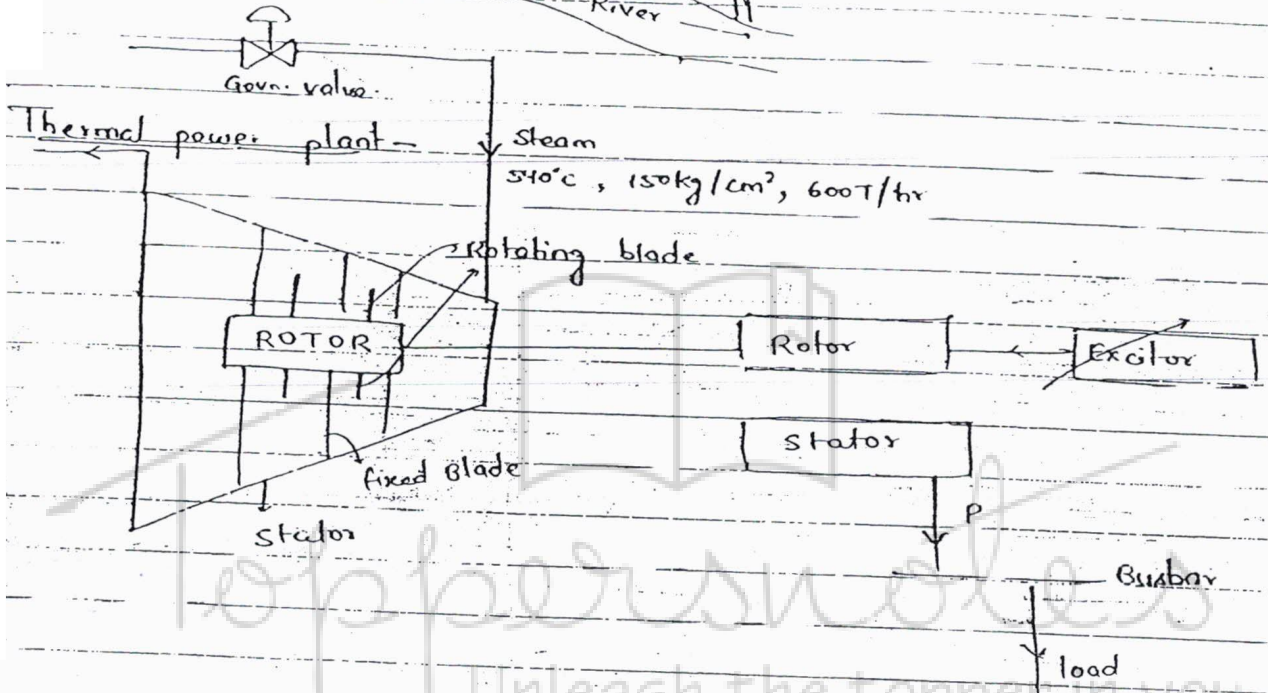 River
Govn. valve.
Thermal power plant -
Steam
540°c , 150kg/cm², 600T/hr
Rotating blade
ROTOR
Rotor
Excitor
Stator
fixed Blade
Stator
P
Busbar
load
Toppersnotes
Unleash the topper in you